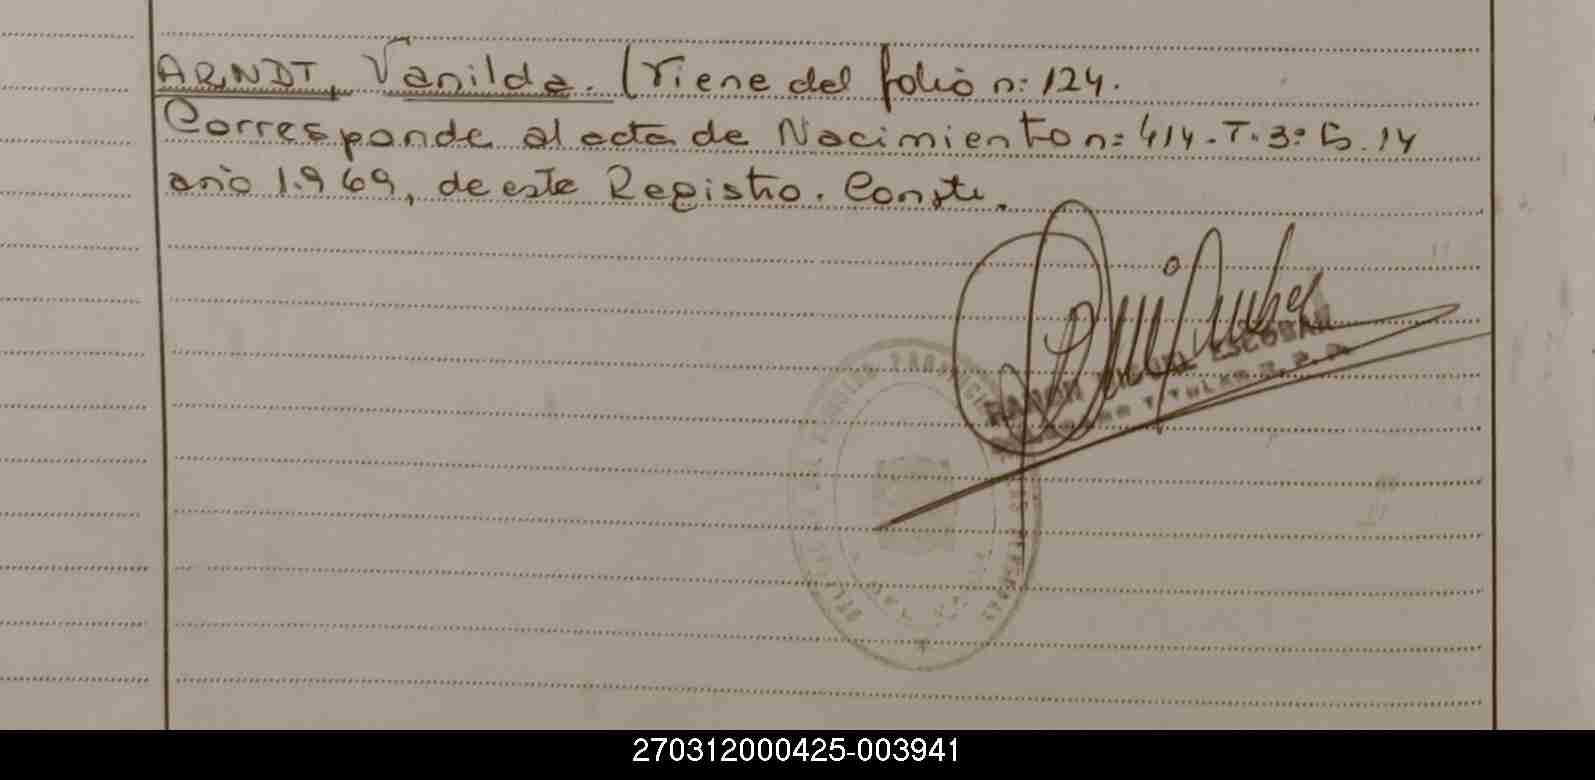 ARNDT, Vanilda. (Viene del folio n: 124.
Corresponde al acta de Nacimiento n: 414. T. 3º 5. 14
año 1.969, de este Registro. Conste.
RAMON MIGUEL ESCOBAR
270312000425-003941